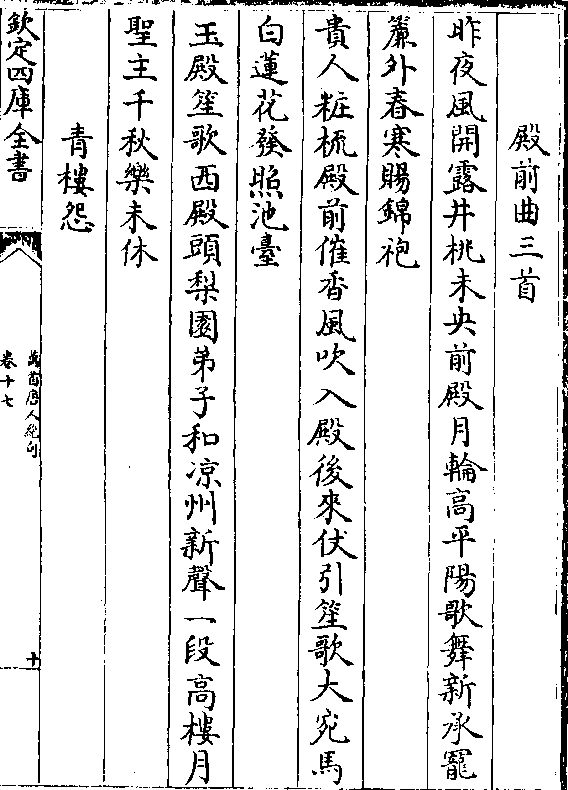 殿前曲三首
昨夜風開露井桃未央前殿月輪高平陽歌舞新承寵
簾外春寒賜錦袍
貴人粧梳殿前催香風吹入殿後來仗引笙歌大宛馬
白蓮花發照池臺
玉殿笙歌西殿頭梨園弟子和凉州新聲一段高樓月
聖主千秋樂未休
青樓怨
欽定四庫全書
萬首唐人絶句
卷十七
十